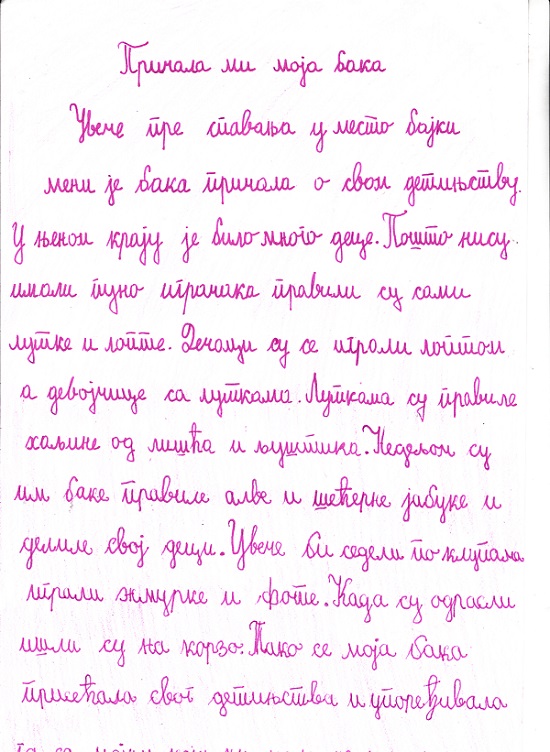 Причала ми моја бака
Увече пре спавања у место бајки
мени је бака причала о свом детињству.
У њеном крају је било много деце. Пошто нису
имали пуно играчака правили су сами
лутке и лопте. Дечаци су се играли лоптом
а девојчице са луткама. Луткама су правиле
хаљине од лишћа и љуштика. Недељом су
им баке правиле алве и шећерне јабуке и
делиле свој деци. Увече би седели по клупама
играли жмурке и фоте. Када су одрасли
ишли су на корзо. Тако се моја бака
присећала свог детињства и упоређивала
га са мојим